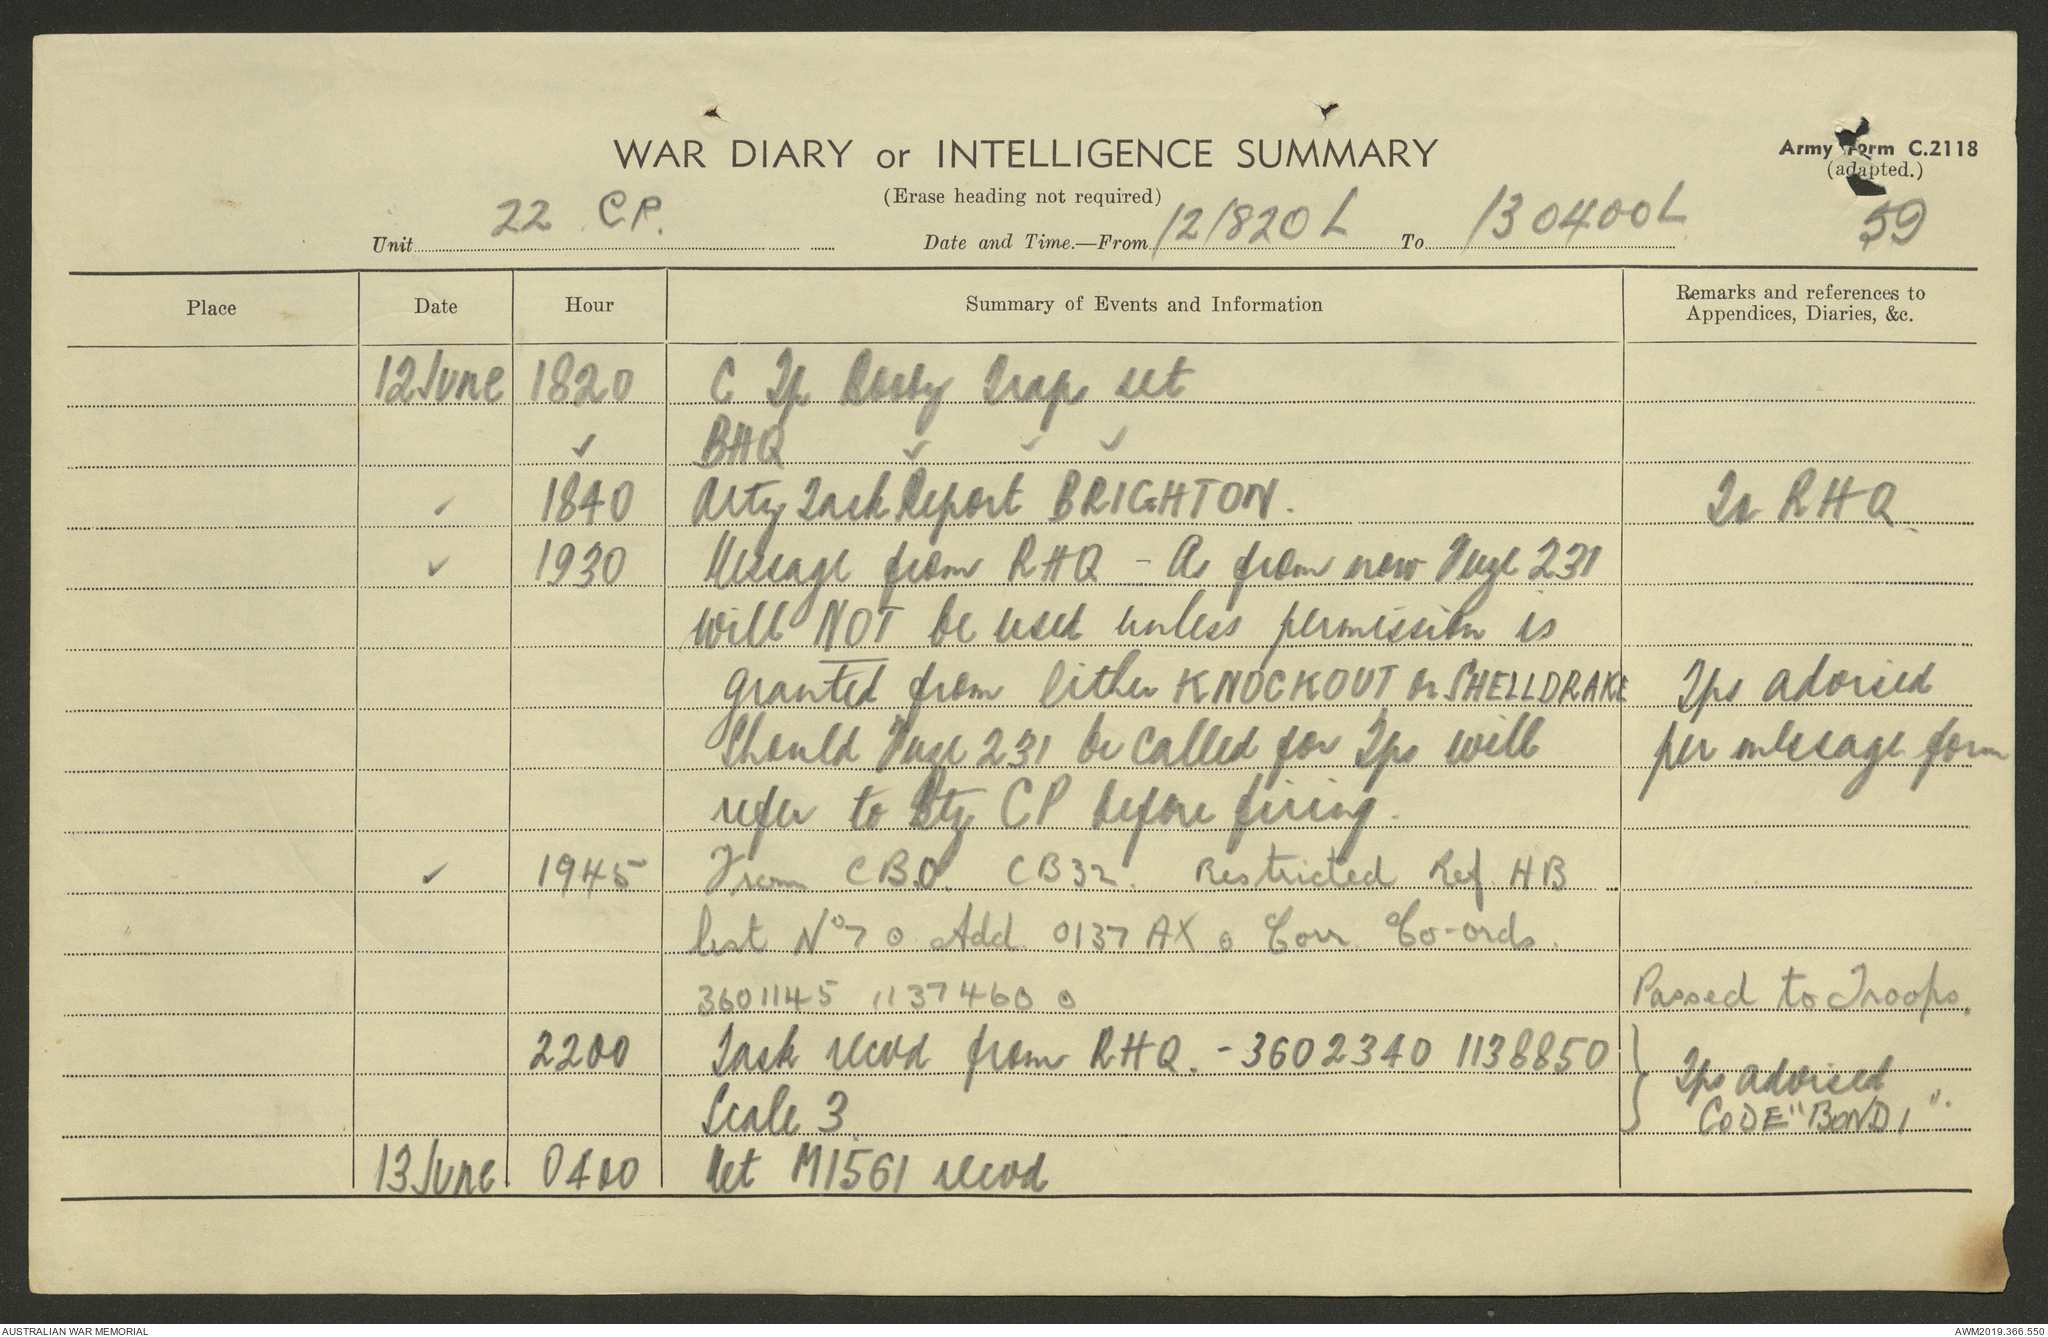 WAR DIARY or INTELLIGENCE SUMMARY
Army Form C.2118
(adapted.)
(Erase heading not required)
59
Unit 22 C.P. Date and Time.—From 121820L To 130400L
Place Date Hour Summary of Events and Information Remarks and references to
Appendices, Diaries, &c.
12 June 1820 C Tp Booby Traps set
✓ BHQ ✓ ✓ ✓
✓ 1840 Arty Task Report BRIGHTON. To RHQ.
✓ 1930 Message from RHQ - As from now Fuze 231
will NOT be used unless permission is
granted from either KNOCKOUT or SHELLDRAKE Tps advised
Should Fuze 231 be called for Tps will per message form
refer to Bty CP before firing.
✓ 1945 From CBO. CB32. Restricted Ref. HB
list No 7 o Add 0137 AX o Corr Co-ords.
3601145 1137460 o Passed to Troops.
2200 Task recvd from RHQ. - 3602340 1138850 Tps advised
Scale 3 CODE "BONDI".
13 June 0400 Met M1561 recvd
AUSTRALIAN WAR MEMORIAL
AWM2019.366.550